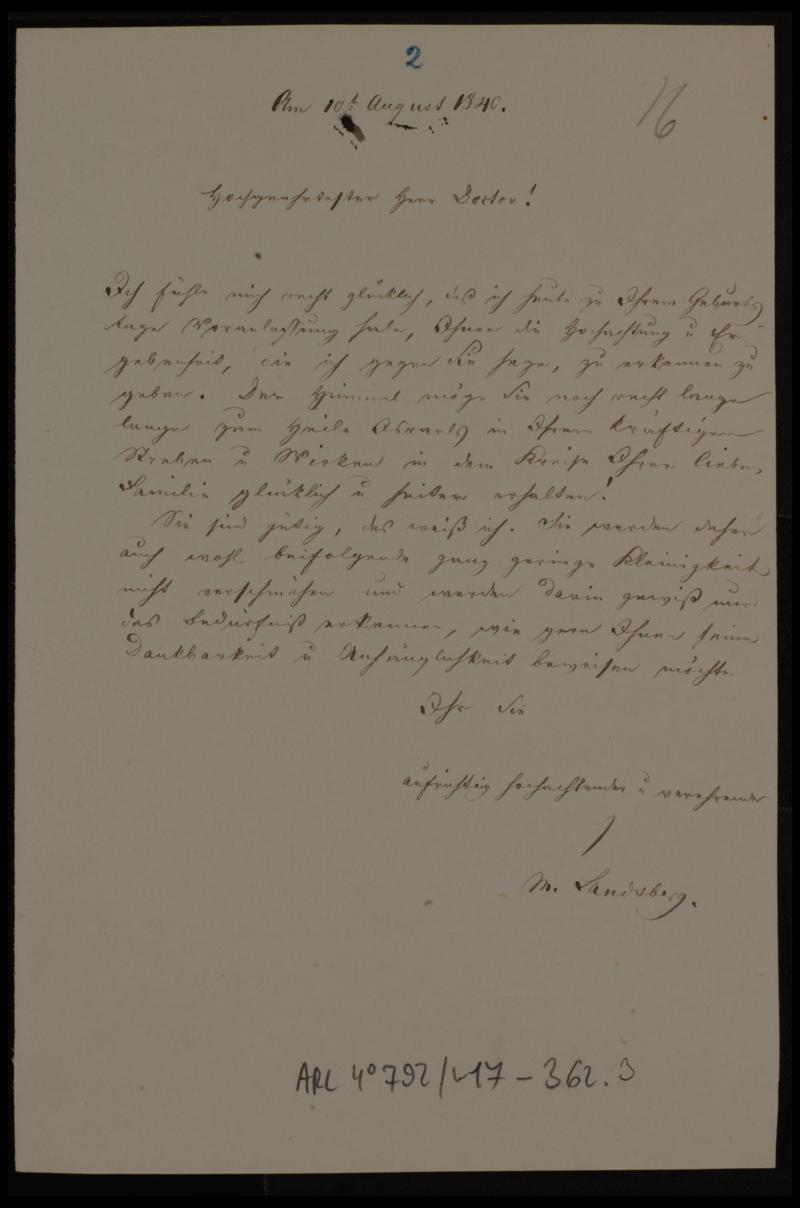 2
Am 10t August 1840.
76
Hochgeehrtester Herr Doctor!
Ich fühle mich recht glücklich, daß ich heute zu Ihrem Geburts
tage Veranlassung habe, Ihnen die Hochachtung u Er-
gebenheit, die ich gegen Sie hege, zu erkennen zu
geben. Der Himmel möge Sie noch recht lange
lange zum Heile Israels in Ihrem kräftigen
Streben u Wirken in dem Kreise Ihrer lieben
Familie glücklich u heiter erhalten!
Sie sind gütig, das weiß ich. Sie werden daher
auch wohl beifolgende ganz geringe Kleinigkeit
nicht verschmähen und werden darin gewiß nur
das Bedürfniß erkennen, wie gern Ihnen seine
Dankbarkeit u Anhänglichkeit beweisen möchte
Ihr Sie
aufrichtig hochachtender u verehrender
M. Landsberg.
ARC 4° 792/ 17 - 362.3